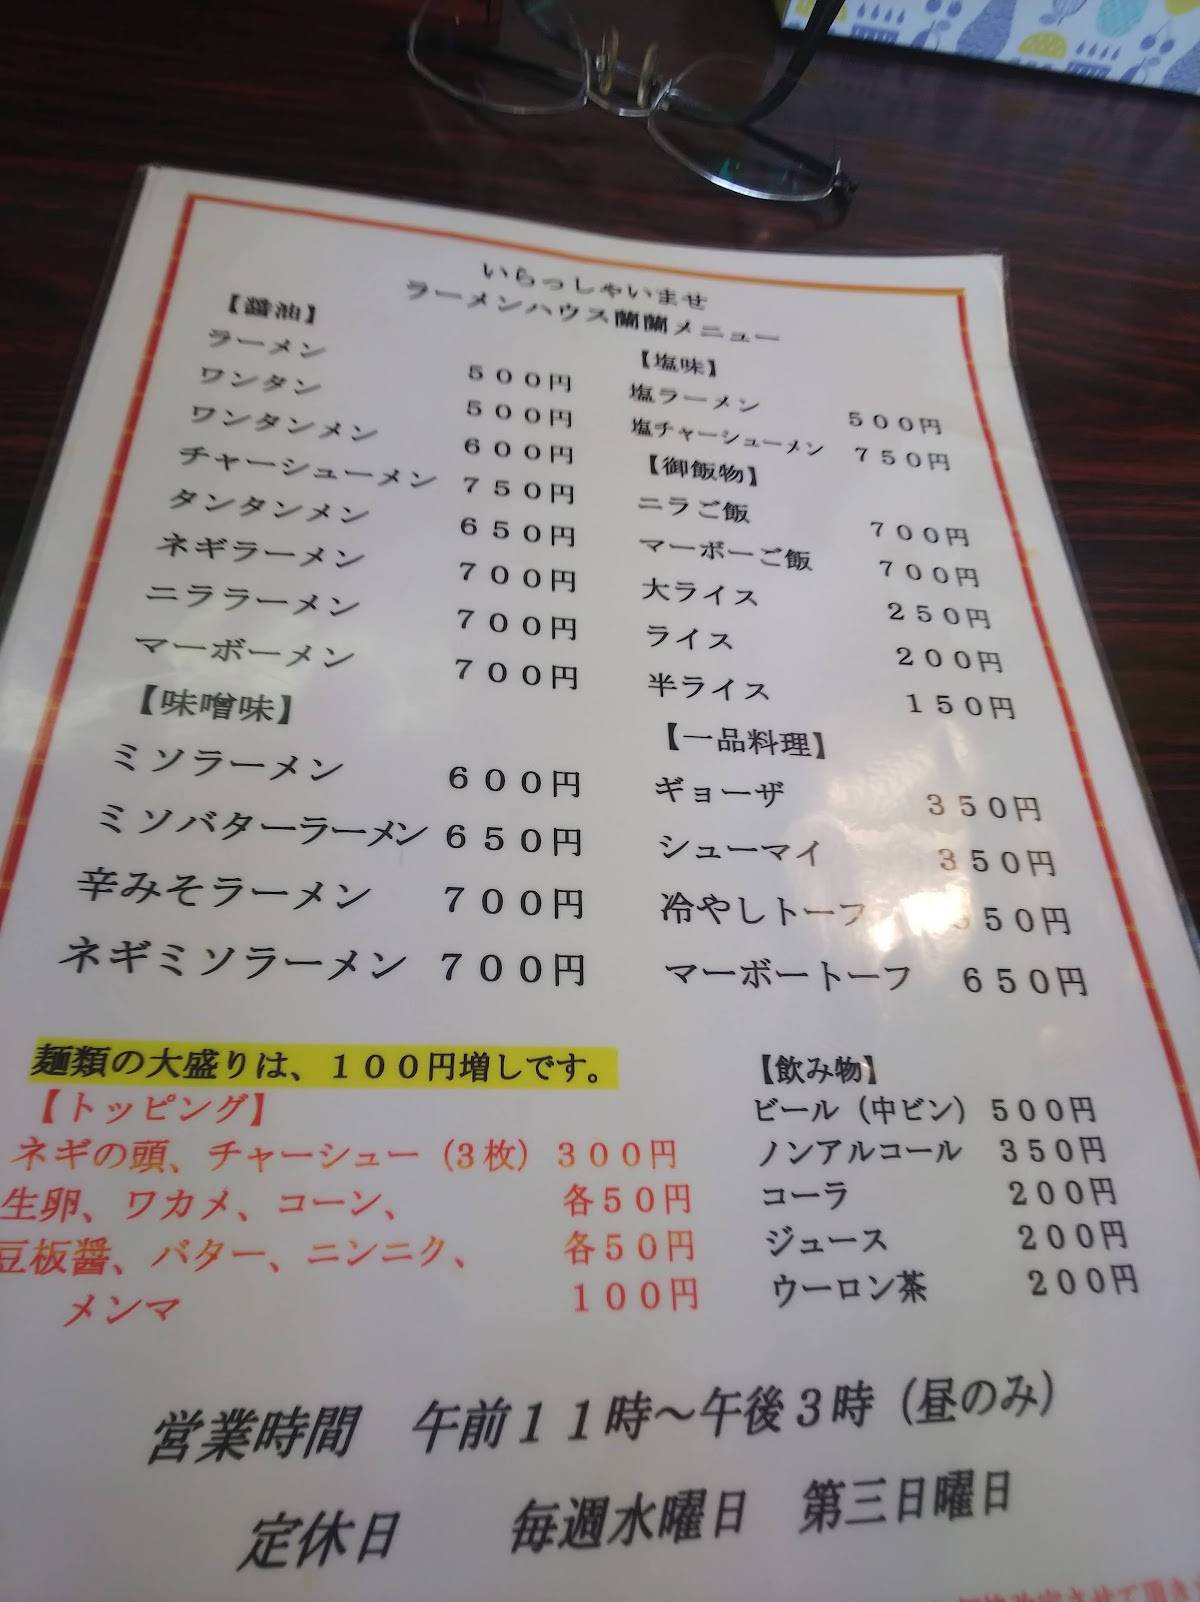 いらっしゃいませ
ラーメンハウス蘭蘭メニュー
【醤油】
ラーメン 500円
ワンタン 500円
ワンタンメン 600円
チャーシューメン 750円
タンタンメン 650円
ネギラーメン 700円
ニララーメン 700円
マーボーメン 700円
【味噌味】
ミソラーメン 600円
ミソバターラーメン 650円
辛みそラーメン 700円
ネギミソラーメン 700円
【塩味】
塩ラーメン 500円
塩チャーシューメン 750円
【御飯物】
ニラご飯 700円
マーボーご飯 700円
大ライス 250円
ライス 200円
半ライス 150円
【一品料理】
ギョーザ 350円
シューマイ 350円
冷やしトーフ 50円
マーボートーフ 650円
麺類の大盛りは、100円増しです。
【トッピング】
ネギの頭、チャーシュー(3枚) 300円
生卵、ワカメ、コーン、 各50円
豆板醤、バター、ニンニク、 各50円
メンマ 100円
【飲み物】
ビール(中ビン) 500円
ノンアルコール 350円
コーラ 200円
ジュース 200円
ウーロン茶 200円
営業時間 午前11時～午後3時(昼のみ)
定休日 毎週水曜日 第三日曜日